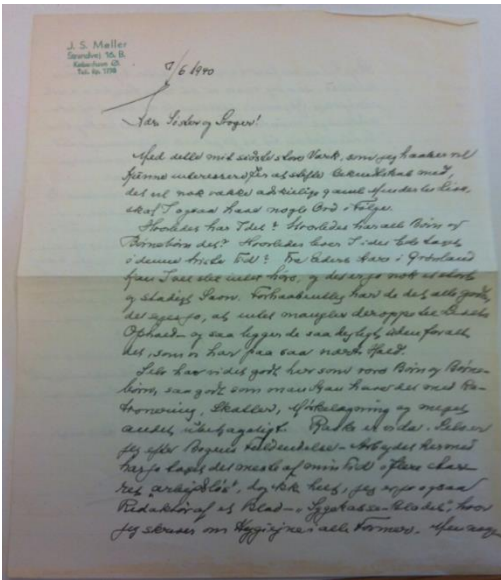 J. S. Møller
Strandvej 16 B.
København
/6 1940
Kære Søster og Svoger!
Med dette mit sidste store Værk, som jeg haaber vil
kunne interessere Jer at stifte Bekendtskab med,
det vil nok vække adskillige gamle Minder til Live,
skal I ogsaa have nogle Ord i Følge.
Hvorledes har I det? Hvorledes har alle Børn og
Børnebørn det? Hvorledes lever I i det hele taget
i denne Tid? Fra Eders i Grønland
kan I vel slet intet høre, og det er jo nok et stort
og stadigt Savn. Forhaabentlig har de det alle godt,
det siges jo, at intet mangler deroppe til Livets
Ophold - og saa ligger de saa dejligt uden for alt
det, som vi har paa saa nært Hold.
Selv har vi det godt her som vore Børn og Børne-
børn, saa godt som man kan have det med Ra-
tionering, Skatter, Mørkelægning og meget
andet ubehageligt. Raske er vi da. Selv er
jeg efter Bogens Fuldendelse - Arbejdet hermed
har jo taget det meste af min Tid i flere Aar -
ret "arbejdsløs", dog ikke helt, jeg er jo ogsaa
Redaktør af et Blad - "Sygekasse-Bladet", hvor
jeg skriver om Hygiejne i alle Former. Men